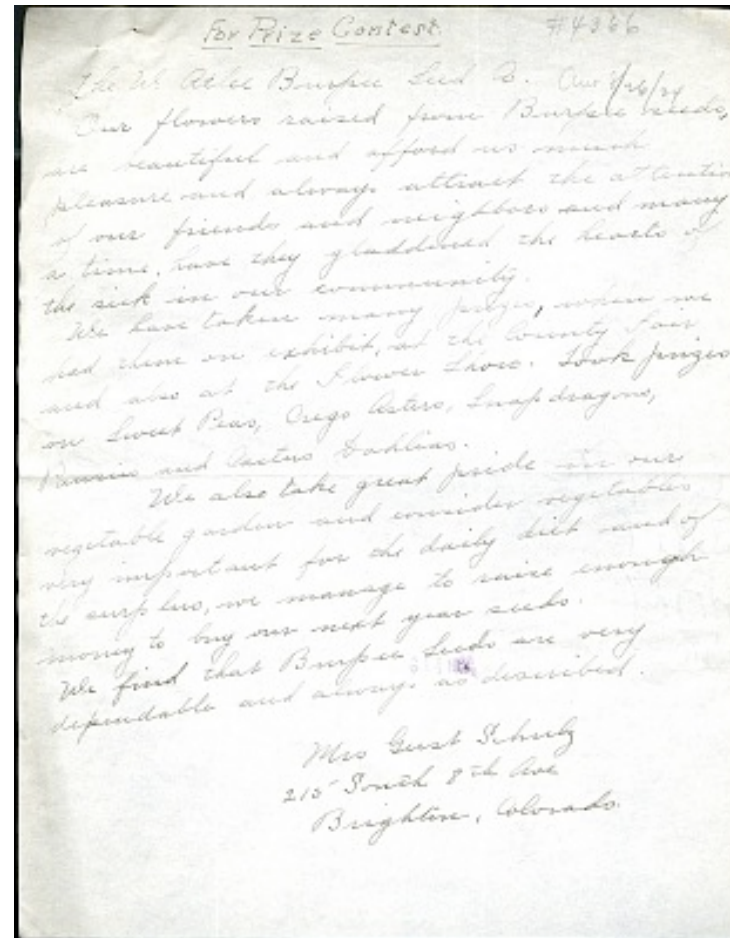 For Prize Contest. #4366
The W. Atlee Burpee Seed Co.
Our flowers raised from Burpee seeds,
are beautiful and afford us much
pleasure and always attract the attention
of our friends and neighbors and many
a time, have they gladdened the hearts of
the sick in our community.
We have taken many prizes, when we
had them on exhibit, at the County Fair
and also at the Flower Show. Took prizes
on Sweet Peas, Crego Asters, Snapdragons,
Pansies and Cactus Dahlias.
We also take great pride in our
vegetable garden and consider vegetables
very important for the daily diet and of
the surplus, we manage to raise enough
money to buy our next year seeds.
We find that Burpee Seeds are very
dependable and always as described.
Mrs Gust Schulz
215 South 8th Ave
Brighton, Colorado.